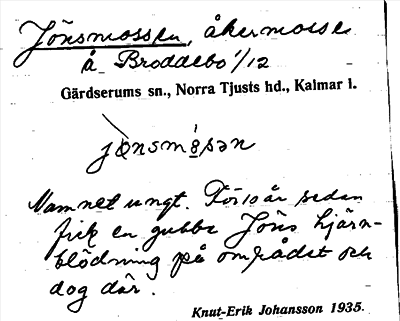 Jönsmossen, åkermosse
å Broddebo 1/12
Gärdserums sn., Norra Tjusts hd., Kalmar l.
jönsmåsən
Namnet ungt. För 10 år sedan
fick en gubbe Jöns hjärn-
blödning på området och
dog där.
Knut-Erik Johansson 1935.